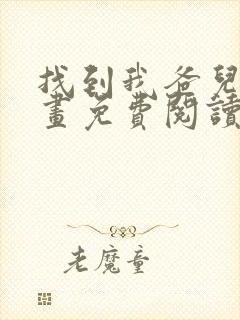 找到我爸兒
畫免費閱讀
老魔童